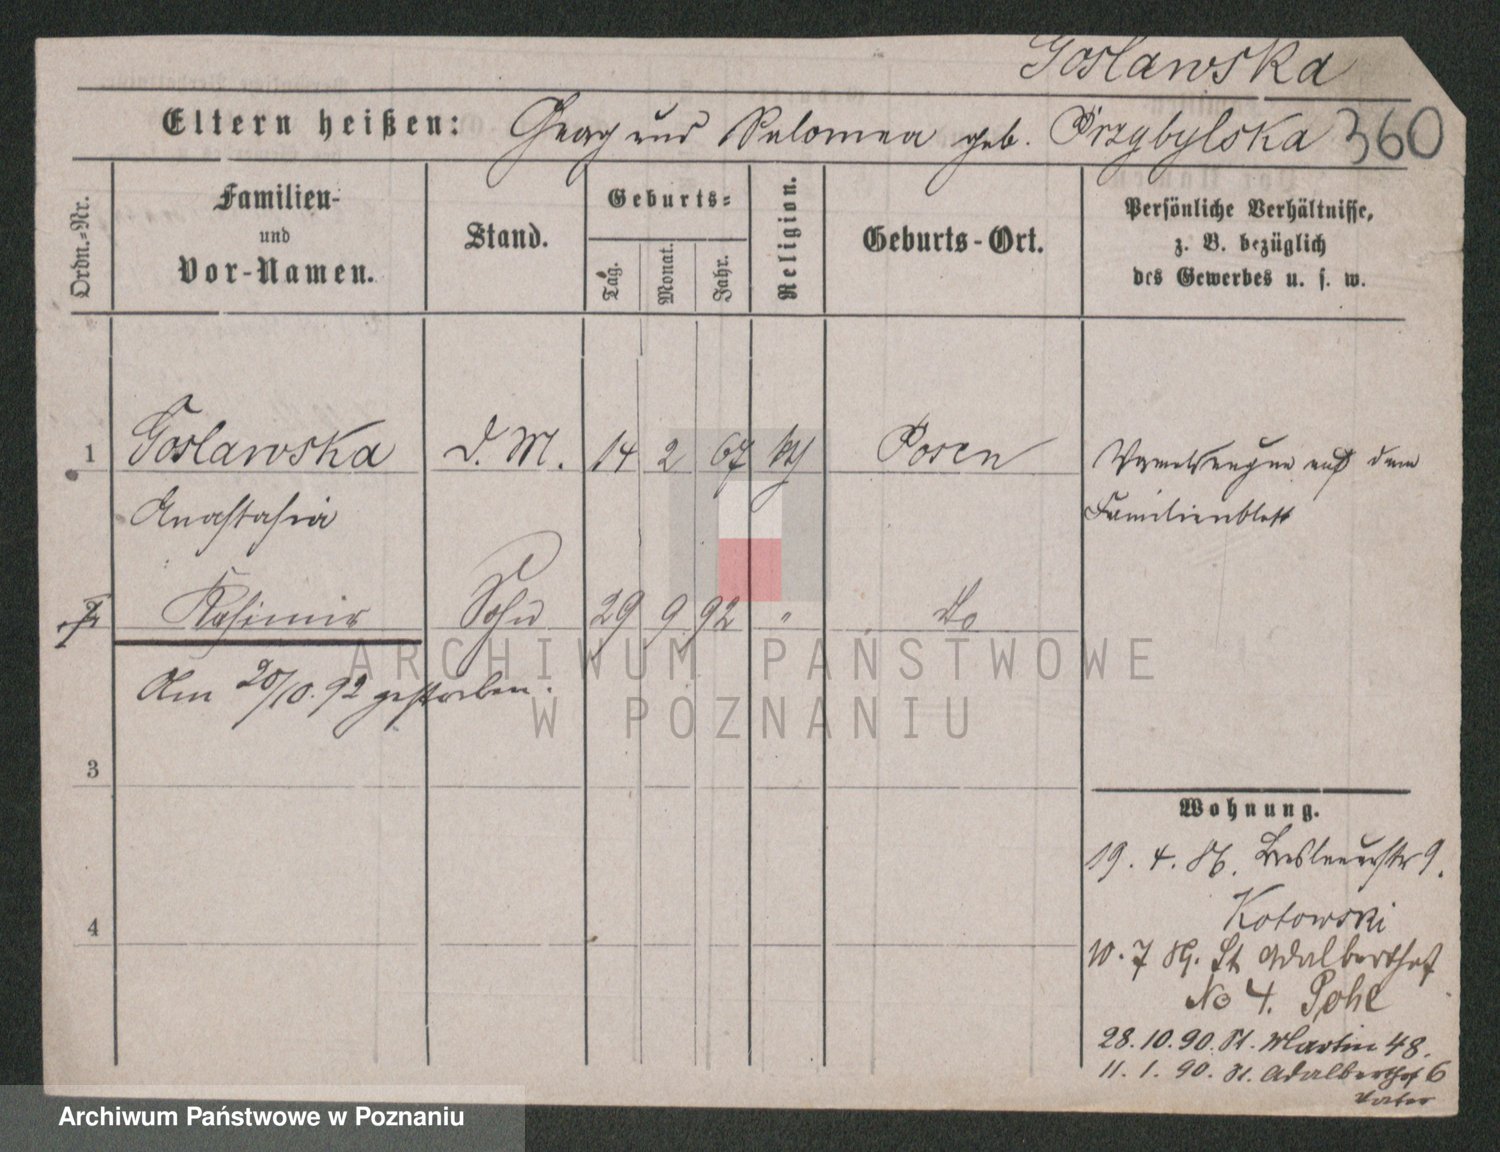 Goslawska
Eltern heißen: Georg und Salomea geb. Przybylska 360
Ordn.-Nr.
Familien-
und
Vor-Namen.
Stand.
Geburts-
Tag. Monat. Jahr.
Religion.
Geburts-Ort.
Persönliche Verhältnisse,
z. B. bezüglich
des Gewerbes u. s. w.
1 Goslawska D. M. 14 2 67 kth Posen
auf dem
Anastasia Familienblatt
2 Kasimir Sohn 29 9 92 " do
Am 20/10.92 gestorben.
3
4
Wohnung.
19. 4. 86. Breslauerstr 9.
Kotowski
10. 7 89. St Adalberthof
No 4. Pohl
28. 10. 90. St. Martin 48.
11. 1. 90. St. Adalberthof 6
ARCHIWUM PAŃSTWOWE
W POZNANIU
Archiwum Państwowe w Poznaniu